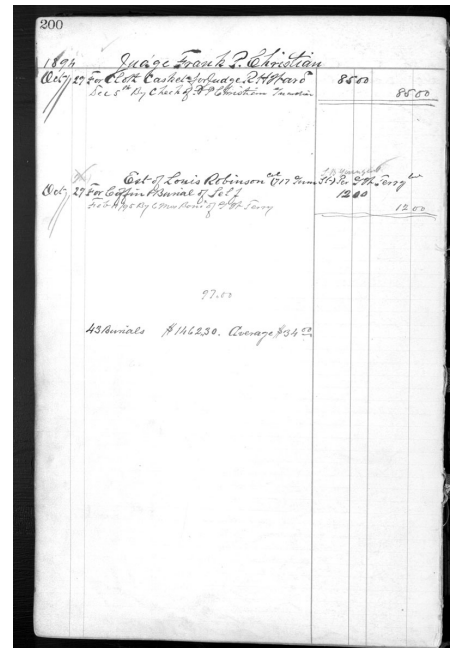 200
1894 Judge Frank P. Christian
Oct 29 For Cloth Casket for Judge R. H. Ward 85 00
Dec 5th By Check of F P Christian 85 00
Est of Louis Robinson Col (717 St) Per Terry
Oct 29 For Coffin & Burial of Self 12 00
By C of Terry 12 00
97.00
43 Burials $1462.30. Average $34 00